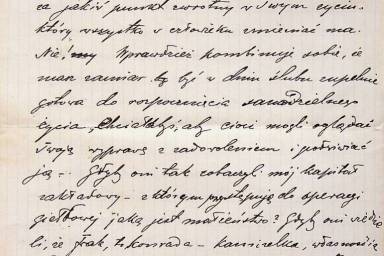 za jakiś punkt zwrotny w swym życiu
który wszystko w człowieku zmieniać ma.
Nie! my Wprawdzież kombinuję sobie, że
masz zamiar być w dniu ślubu zupełnie
gotowa do rozpoczęcia samodzielnego
życia, Chciałabyś, aby cioci mogli oglądać
Twoją wyprawę z zadowoleniem i podziwiać
ją — Gdyby oni tak zobaczyli mój kapitał
zakładowy — z którym przystępuję do operacji
giełdowej jaką jest małżeństwo? Gdyby oni wiedzie
li, że frak, to Konrada — kamizelka, własnością